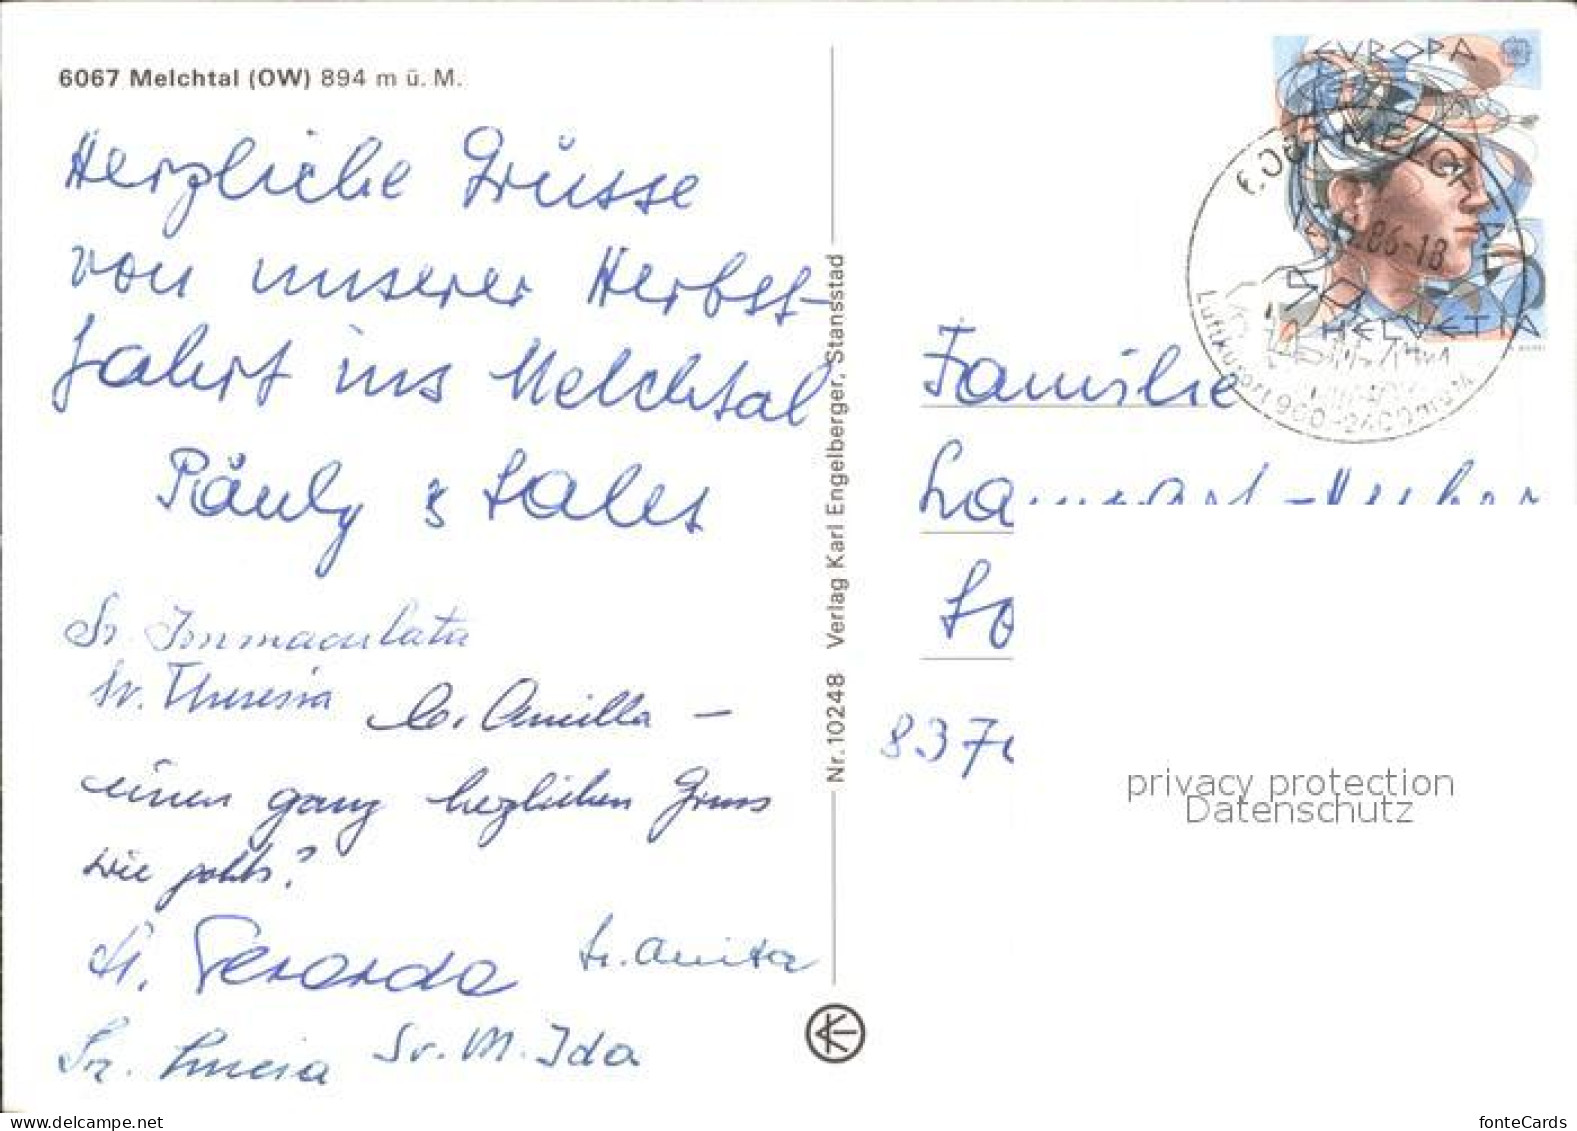 6067 Melchtal (OW) 894 m ü. M.
Herzliche Grüsse
von unserer Herbst-
fahrt ins Melchtal
Päuly & Sales
Sr. Immaculata
Sr. Theresia
Sr. Ancilla –
einen ganz herzlichen Gruss
wie gehts?
Sr. Gerarda
Sr. Anita
Sr. Lucia
Sr. M. Ida
Nr. 10248 Verlag Karl Engelberger, Stansstad
EUROPA
HELVETIA
MELCHTAL
86-18
Luftkurort 900-2400 m
Familie
8374
privacy protection
Datenschutz
fonteCards